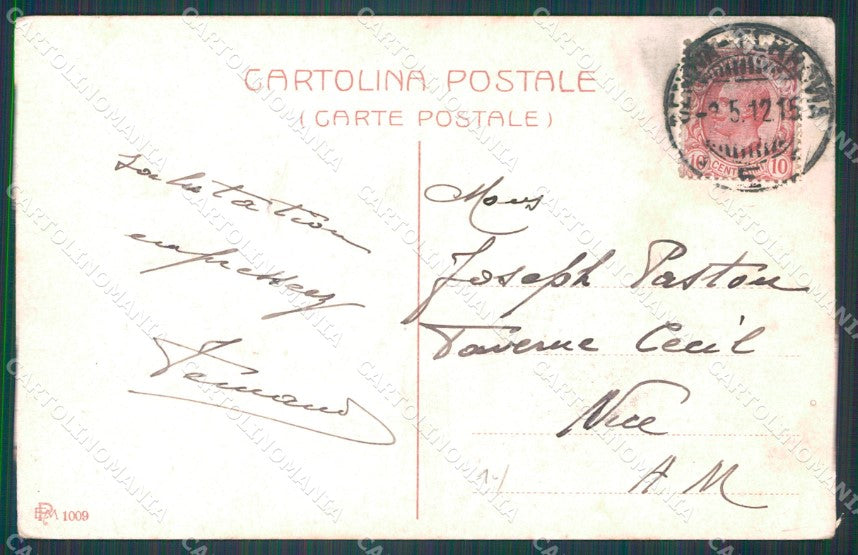 CARTOLINA POSTALE
(CARTE POSTALE)
-2.5.12.15
10 CENT 10
Salutation
empressées
Fernand
Mons
Joseph Paston
Taverne Cecil
Nice
A M
1009
CARTOLINOMANIA